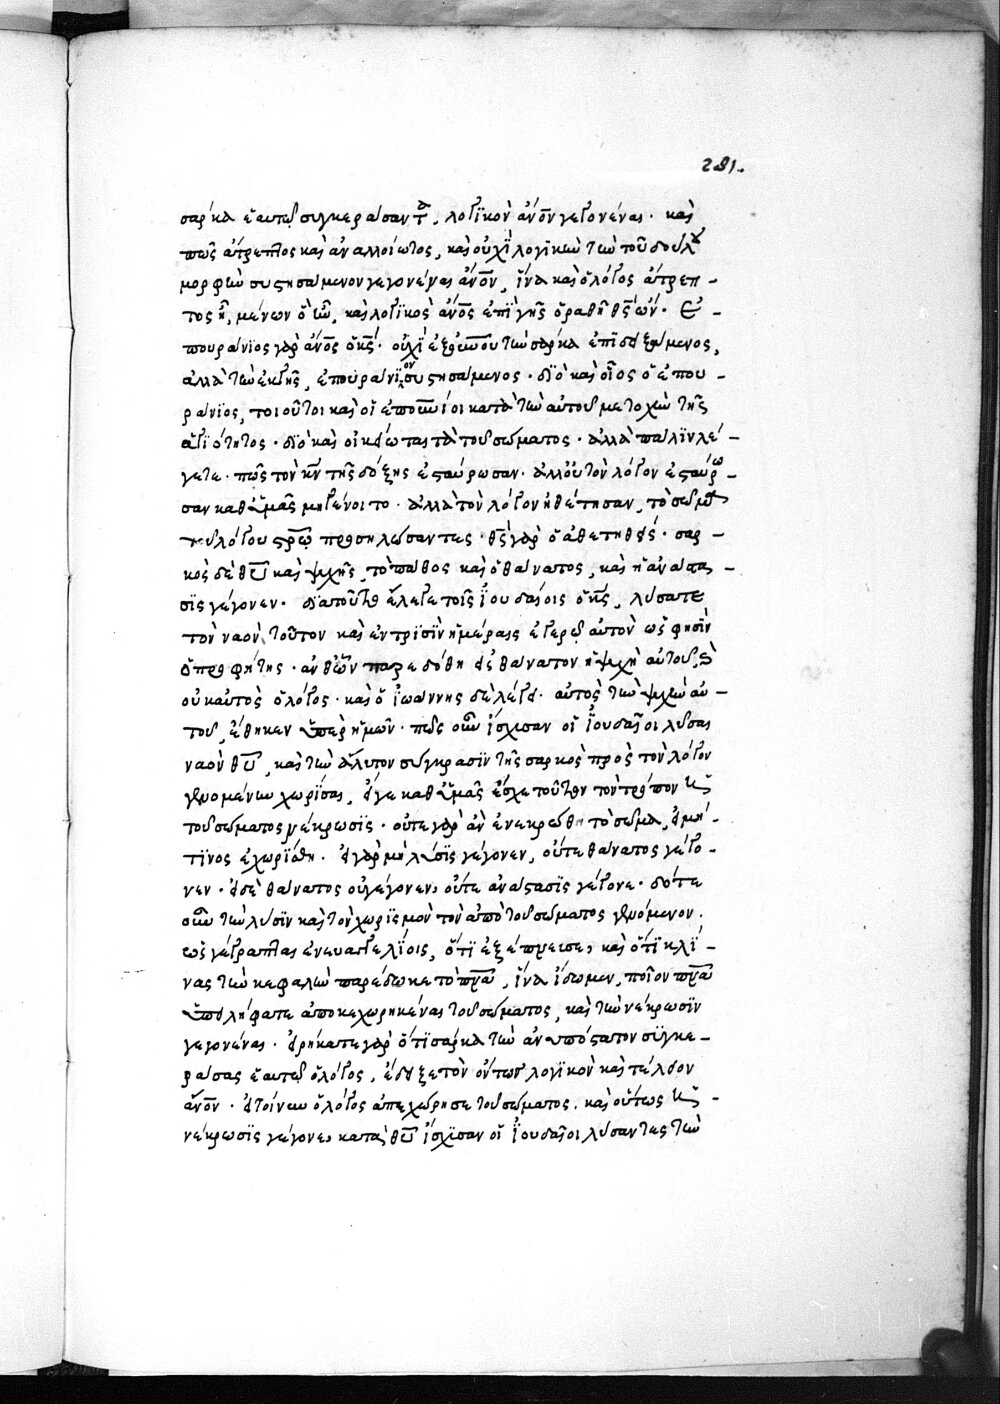 291.
σάρκα ἑαυτῷ συγκεράσαντα, λογϊκὸν ἄνον γεγονέναι· καὶ
πῶς ἄτρεπτος καὶ ἀναλλοίωτος, καὶ οὐχὶ λογικὴν τὴν τοῦ δούλου
μορφὴν συστησάμενον γεγονέναι ἄνον, ἵνα καὶ ὁ λόγος ἄτρεπ-
τος ᾖ, μένων ὃ ἦν, καὶ λογϊκὸς ἄνος ἐπὶ γῆς ὁραθῇ θς ὤν· ἐ-
πουράνιος γὰρ ἄνος ὁ κς· οὐχὶ ἐξ οὐνοῦ τὴν σάρκα ἐπιδειξάμενος,
ἀλλὰ τὴν ἐκ γῆς, ἐπουράνιον συστησάμενος· δϊὸ καὶ οἷος ὁ ἐπου-
ράνιος, τοιοῦτοι καὶ οἱ ἐπουνιοι κατὰ τὴν αὐτοῦ μετοχὴν τῆς
ἁγϊότητος· δϊὸ καὶ οἰκειοῦται τὰ τοῦ σώματος· ἀλλὰ πάλϊν λέ-
γετε· πῶς τὸν κν τῆς δόξης ἐσταύρωσαν· ἀλλ' οὐ τὸν λόγον ἐσταύρω-
σαν καθ' ὑμᾶς μὴ γένοιτο· ἀλλὰ τὸν λόγον ἠθέτησαν, τὸ σῶμα
τοῦ λόγου στρῶ προσηλώσαντες· θς γὰρ ὁ ἀθετηθείς· σαρ-
κὸς δὲ θυ καὶ ψυχῆς, τὸ πάθος καὶ ὁ θάνατος, καὶ ἡ ἀνάστα-
σϊς γέγονεν· δϊὰ τοῦτο ἔλεγε τοῖς ἰουδαίοις ὁ κς, λύσατε
τὸν ναὸν τοῦτον καὶ ἐν τρισὶν ἡμέραις ἐγερῶ αὐτὸν ὥς φησϊν
ὁ προφήτης· ἀνθ' ὧν παρεδόθη εἰς θάνατον ἡ ψυχὴ αὐτοῦ, καὶ
οὐκ αὐτὸς ὁ λόγος· καὶ ὁ ἰωάννης δὲ λέγει· αὐτὸς τὴν ψυχὴν αὐ-
τοῦ, ἔθηκεν ὑπὲρ ἡμῶν· πῶς οὖν ἴσχυσαν οἱ ἰουδαῖοι λῦσαι
ναὸν θυ, καὶ τὴν ἄλυτον σύγκρασϊν τῆς σαρκὸς πρὸς τὸν λόγον
γενομένην χωρίσαι, εἴγε καθ' ὑμᾶς ἔσχε τοῦτον τὸν τρόπον καὶ
τοῦ σώματος νέκρωσϊς· οὔτε γὰρ ἂν ἐνεκρώθη τὸ σῶμα, εἰ μή-
τϊνος ἐχωρίσθη· εἰ γὰρ μὴ λύσϊς γέγονεν, οὔτε θάνατος γέγο-
νεν· εἰ δὲ θάνατος οὐ γέγονεν, οὔτε ἀνάστασϊς γέγονε· δότε
οὖν τὴν λύσϊν καὶ τὸν χωρϊσμὸν τὸν ἀπὸ τοῦ σώματος γενόμενον·
ὡς γέγραπται ἐν εὐαγγελίοις, ὅτϊ ἐξέπνευσε, καὶ ὅτϊ κλί-
νας τὴν κεφαλὴν παρέδωκε τὸ πνα, ἵνα ἴδωμεν, ποῖον πνα
ὑπολήφατε ἀποκεχωρηκέναι τοῦ σώματος, καὶ τὴν νέκρωσϊν
γεγονέναι· εἰρήκατε γὰρ ὅτϊ σάρκα τὴν ἀνυπόστατον σϋγκε-
ράσας ἑαυτῷ ὁ λόγος, ἔδειξε τὸν ὄντως λογϊκὸν καὶ τέλειον
ἄνον· εἰ τοίνυν ὁ λόγος ἀπεχώρησε τοῦ σώματος, καὶ οὕτως καὶ
νέκρωσϊς γέγονε, κατὰ θυ ἴσχυσαν οἱ ἰουδαῖοι λύσαντες τὴν